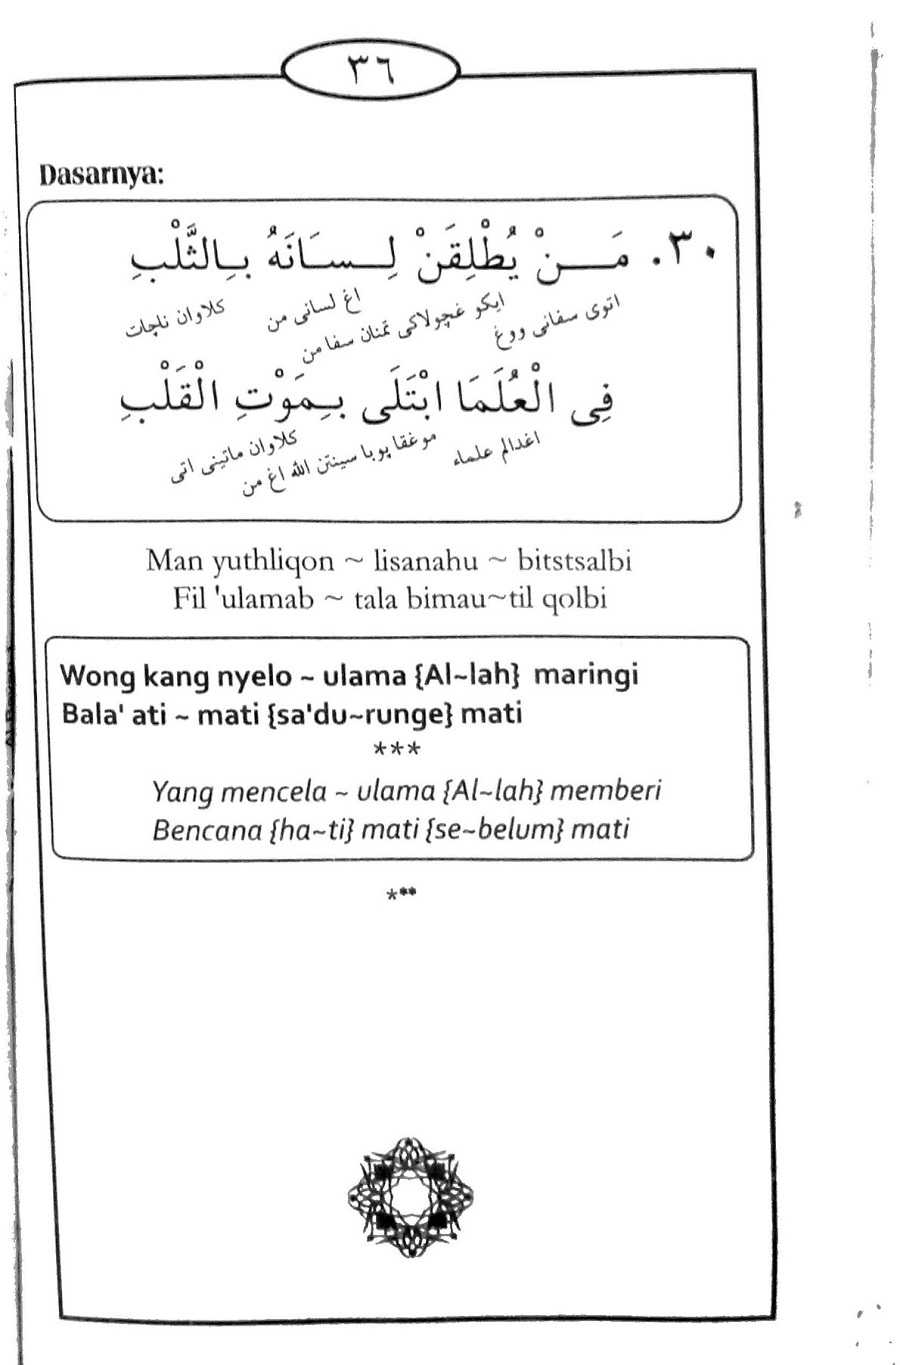 ٣٦
Dasarnya:
٣٠. مَــــنْ يُطْلِقَنْ لِــســـانَهُ بِـالثَّلْبِ
اتوى سفانى ووغ ايكو غچولاكى تمنان سفا من اغ لسانى من كلاوان ناچات
فِي الْعُلَمَا ابْتَلَى بِـمَوْتِ الْقَلْبِ
اغدالم علماء موغقا يوبا سينتن الله اغ من كلاوان ماتينى اتى
Man yuthliqon ~ lisanahu ~ bitstsalbi
Fil 'ulamab ~ tala bimau~til qolbi
Wong kang nyelo ~ ulama {Al~lah} maringi
Bala' ati ~ mati {sa'du~runge} mati
***
Yang mencela ~ ulama {Al~lah} memberi
Bencana {ha~ti} mati {se~belum} mati
***